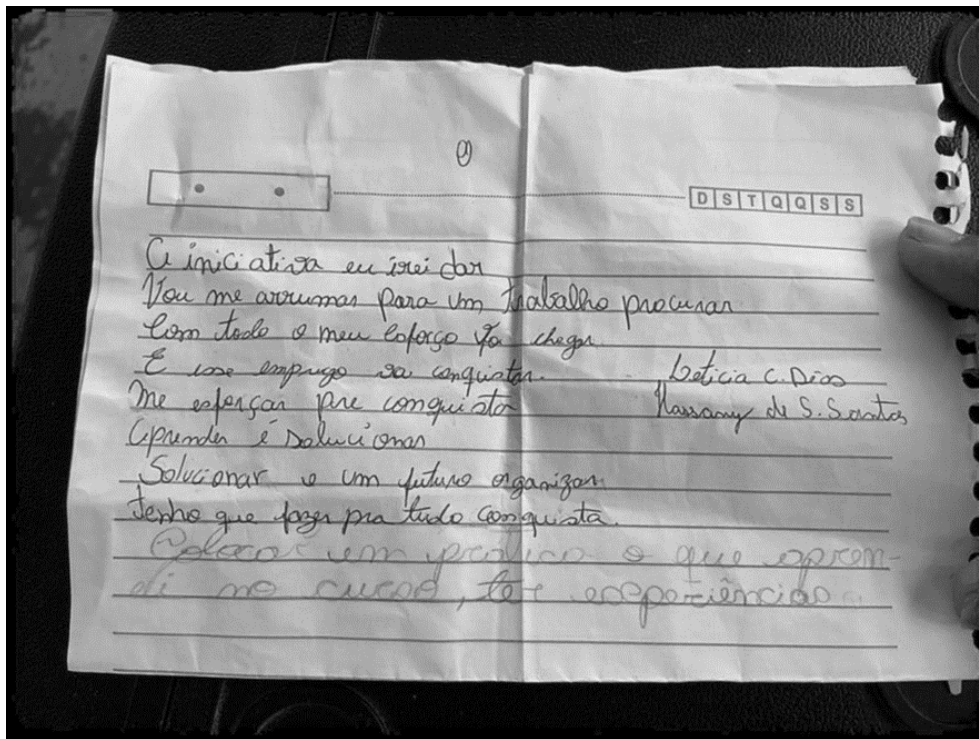 D S T Q Q S S
A iniciativa eu irei dar
Vou me arrumar para um trabalho procurar
Com todo o meu esforço vo chegar
E esse emprego vo conquistar.
Leticia C. Dias
Me esforçar pre conquistar
de S. Santos
Aprender é solucionar
Solucionar e um futuro organizar
Tenho que fazer pra tudo conquista.
Colocar em prática o que apren-
di no curso, ter experiências.